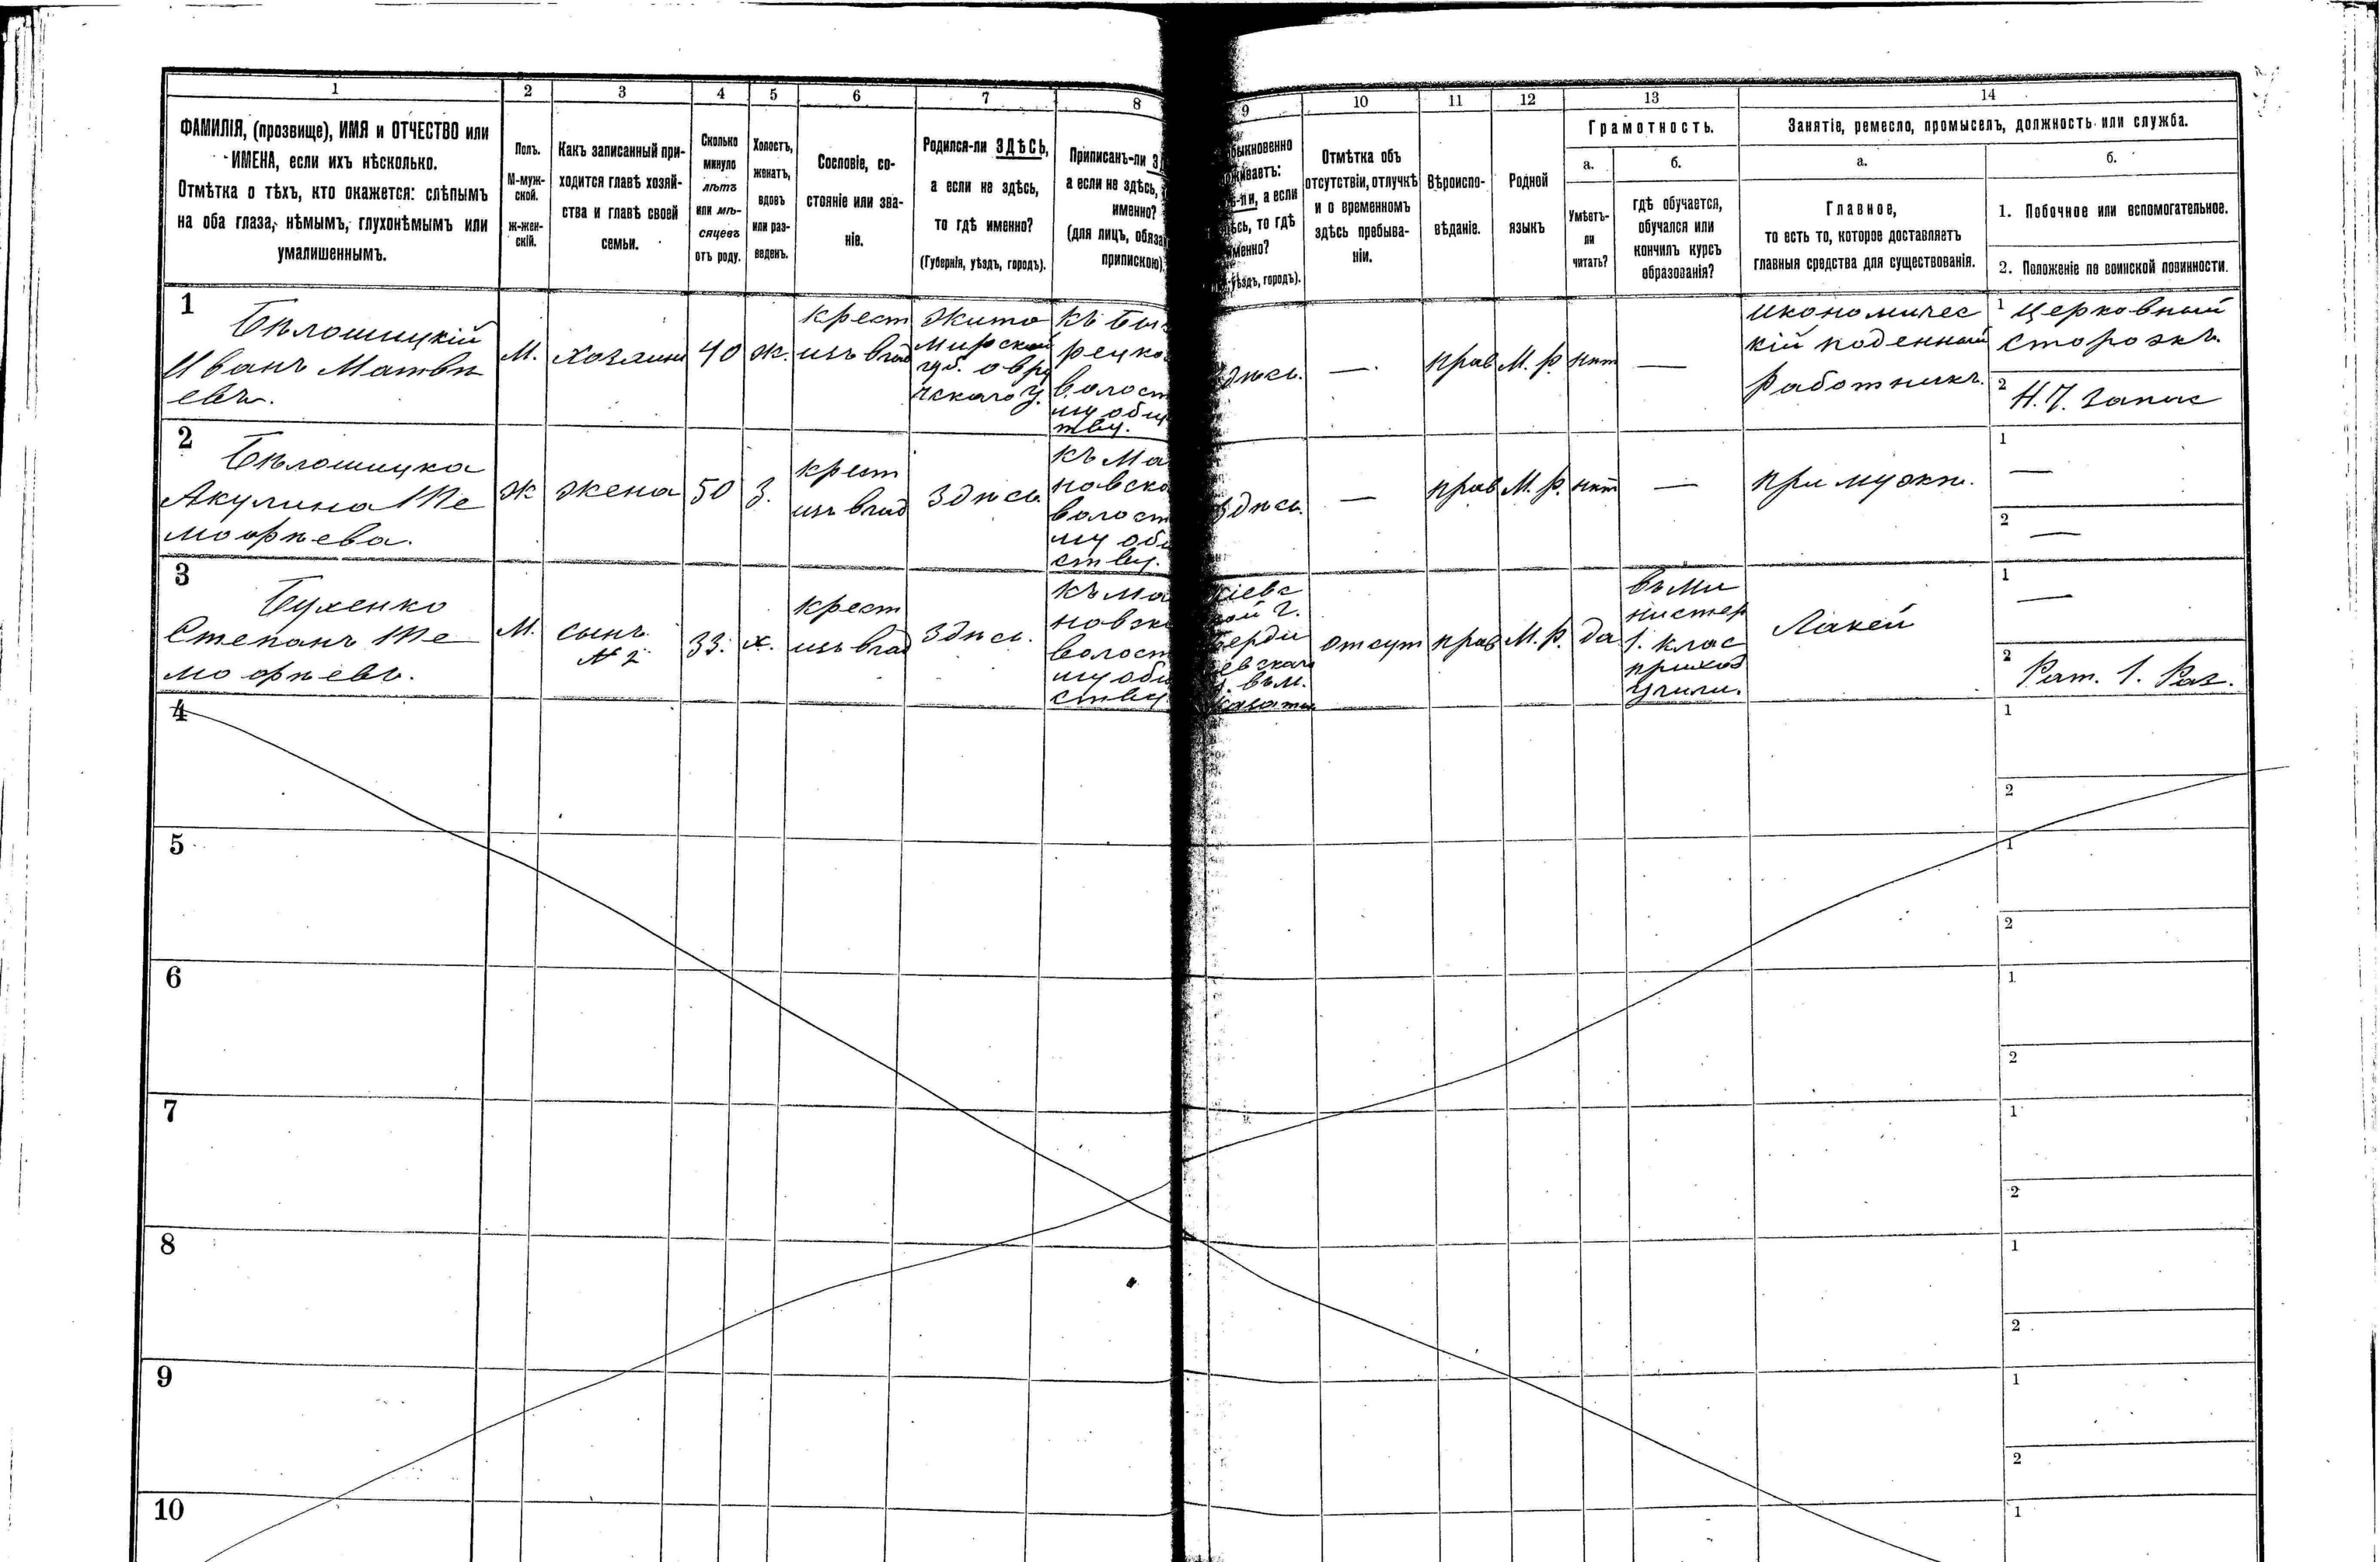 1 2 3 4 5 6 7 8 9 10 11 12 13 14
ФАМИЛІЯ, (прозвище), ИМЯ и ОТЧЕСТВО или
ИМЕНА, если ихъ нѣсколько.
Отмѣтка о тѣхъ, кто окажется: слѣпымъ
на оба глаза, нѣмымъ, глухонѣмымъ или
умалишеннымъ.
Полъ.
М-муж-
ской.
ж-жен-
скій.
Какъ записанный при-
ходится главѣ хозяй-
ства и главѣ своей
семьи.
Сколько
минуло
лѣтъ
или мѣ-
сяцевъ
отъ роду.
Холостъ,
женатъ,
вдовъ
или раз-
веденъ.
Сословіе, со-
стояніе или зва-
ніе.
Родился-ли ЗДѢСЬ,
а если не здѣсь,
то гдѣ именно?
(Губернія, уѣздъ, городъ).
Приписанъ-ли
а если не здѣсь,
именно?
(для лицъ, обяза
припискою)
быкновенно
живаетъ:
ли, а если
сь, то гдѣ
менно?
уѣздъ, городъ).
Отмѣтка объ
отсутствіи, отлучкѣ
и о временномъ
здѣсь пребыва-
ніи.
Вѣроиспо-
вѣданіе.
Родной
языкъ
Грамотность.
а.
Умѣетъ-
ли
читать?
б.
гдѣ обучается,
обучался или
кончилъ курсъ
образованія?
Занятіе, ремесло, промыселъ, должность или служба.
а.
Главное,
то есть то, которое доставляетъ
главныя средства для существованія.
б.
1. Побочное или вспомогательное.
2. Положеніе по воинской повинности.
1
Бѣлошицкій
Иванъ Матвѣ
евъ.
М.
хозяинъ
40
ж.
крест
изъ влад
Жито
мирской
губ. овру
чскаго у.
къ Бы
рецко
волост
му общ
тву.
здѣсь.
—.
прав
М. р.
нѣт
—
икономичес
кій поденный
работникъ.
1 церковный
сторожъ.
2 Н. Ч. Запас
2
Бѣлошицка
Акулина Ти
мофѣева.
ж
жена
50
З.
крест
изъ влад
Здѣсь.
къ Ма
новско
волост
му общ
ству.
Здѣсь.
—
прав
М. р.
нѣт
—
при мужѣ.
1 —
2 —
3
Бухенко
Степанъ Ти
мофѣевъ.
М.
сынъ
№ 2
33.
х.
крест
изъ влад
Здѣсь.
къ Ма
новско
волост
му общ
ству.
кіевс
кой г.
Берди
евскаго
у. въ м.
отсут
прав
М. р.
да
въ Ми
нистер
1. клас
приход
учили.
Лакей
1 —
2 Рат. 1. Раз.
4 1
2
5 1
2
6 1
2
7 1
2
8 1
2
9 1
2
10 1